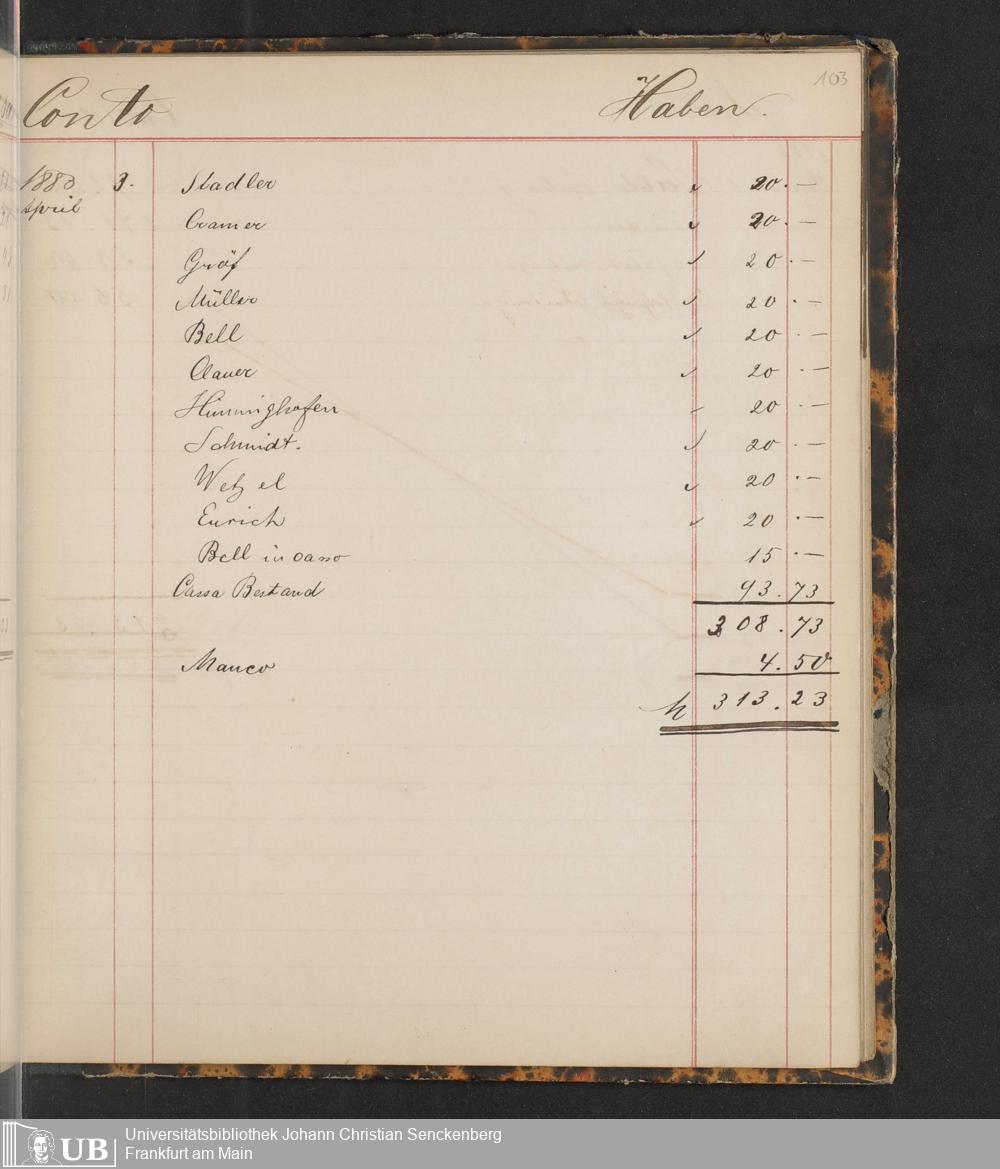 103
Conto Haben.
1883 3. Stadler 20.—
April
Cramer 20.—
Gräf 20.—
Müller 20.—
Bell 20.—
Clauer 20.—
Himminghofen 20.—
Schmidt. 20.—
Wetzel 20.—
Eurich 20.—
Bell in casso 15.—
Cassa Bestand 93.73
308.73
Manco 4.50
313.23
UB Universitätsbibliothek Johann Christian Senckenberg
Frankfurt am Main